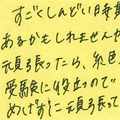 すごくしんどい時期
あるかもしれませんが
頑張ったら、気色
受験に役立つので
めげずに頑張って